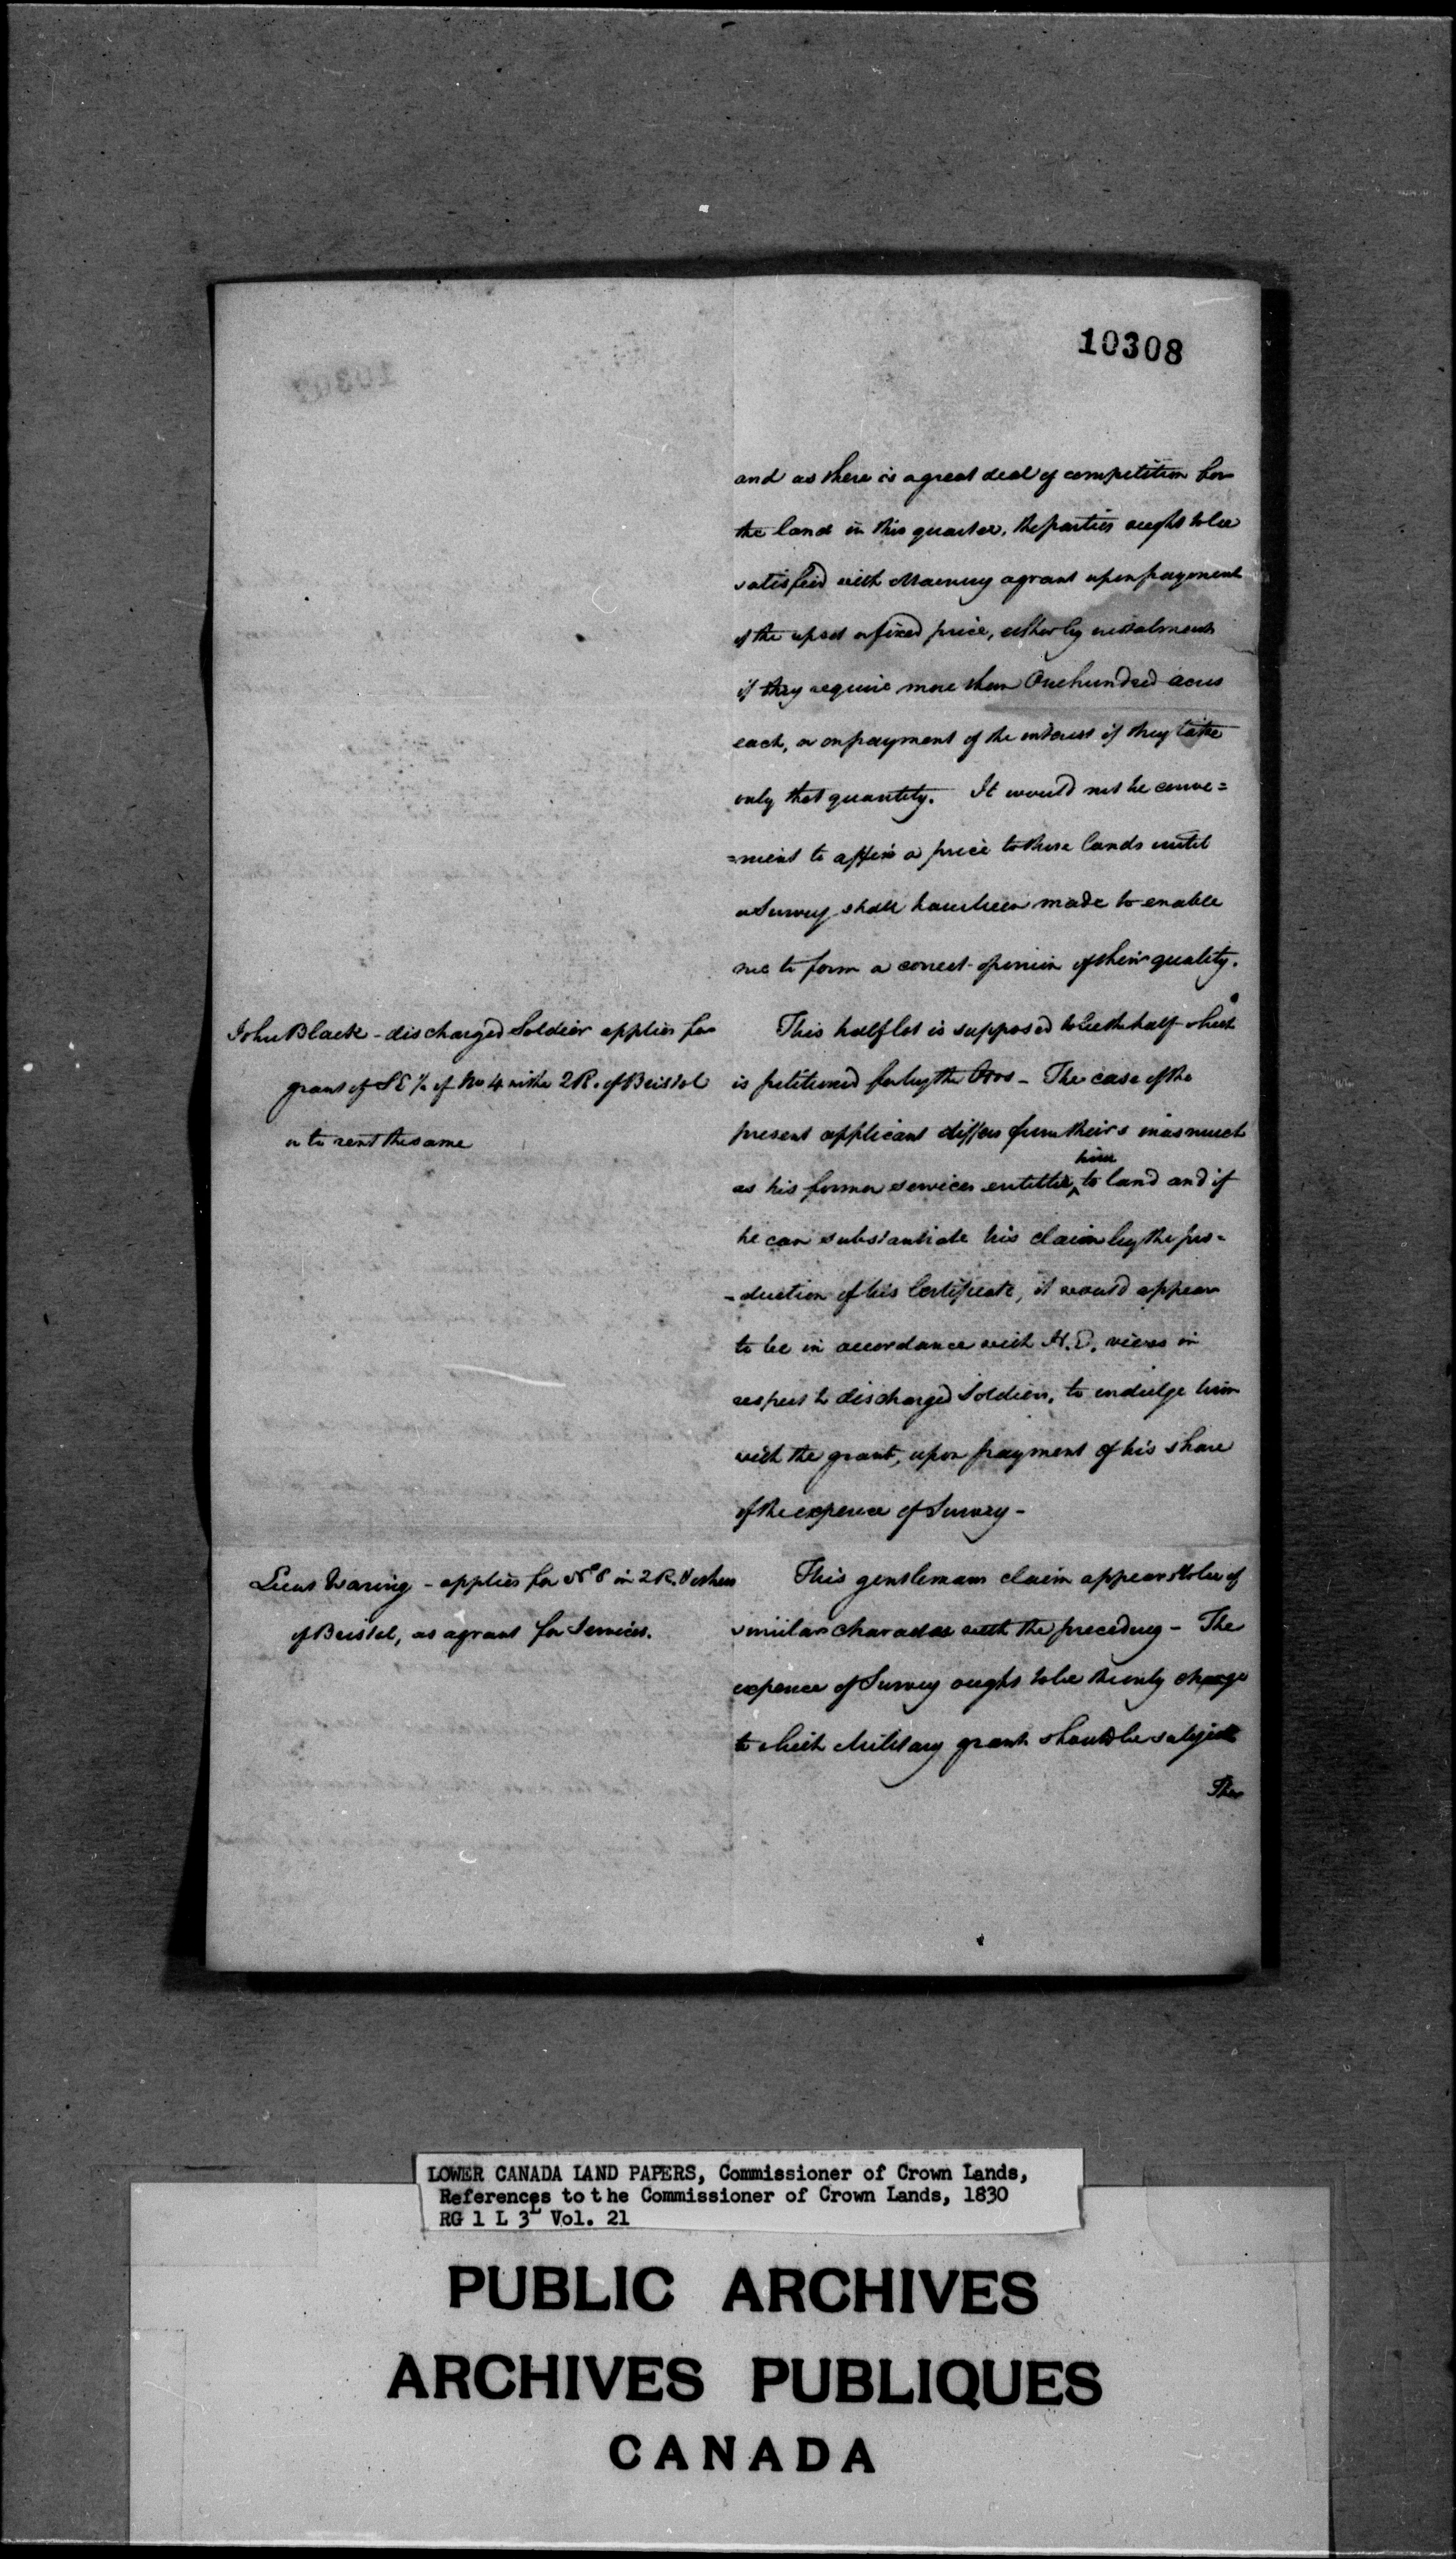 10308
and as there is a great deal of competition for
the land in this quarter, the parties ought to be
satisfied with  a grant upon payment
of the upset or fixed price, either by instalments
if they require more than One hundred acres
each, or on payment of the interest if they take
only that quantity. It would not be conve=
=nient to affix a price to these lands until
a Survey shall have been made to enable
me to form a correct opinion of their quality.
John Black - discharged Soldier applies for
grant of SE ½ of No 4 in the 2 R. of Bristol
or to rent the same
This half lot is supposed to be the half which
is petitioned for by the - The case of the
present applicant differs from theirs inasmuch
as his former services entitle ^him to land and if
he can substantiate his claim by the pro-
-duction of his Certificate, it would appear
to be in accordance with H.E. views in
respect to discharged Soldiers, to indulge him
with the grant, upon payment of his share
of the expence of Survey -
Lieut Waring - applies for No 8 in 2 R.
of Bristol, as a grant for Services.
This gentlemans claim appears to be of
similar character with the preceding - The
expence of Survey ought to be the only charge
to which Military grants should be subject
The
LOWER CANADA LAND PAPERS, Commissioner of Crown Lands,
References to the Commissioner of Crown Lands, 1830
RG 1 L 3L Vol. 21
PUBLIC ARCHIVES
ARCHIVES PUBLIQUES
CANADA